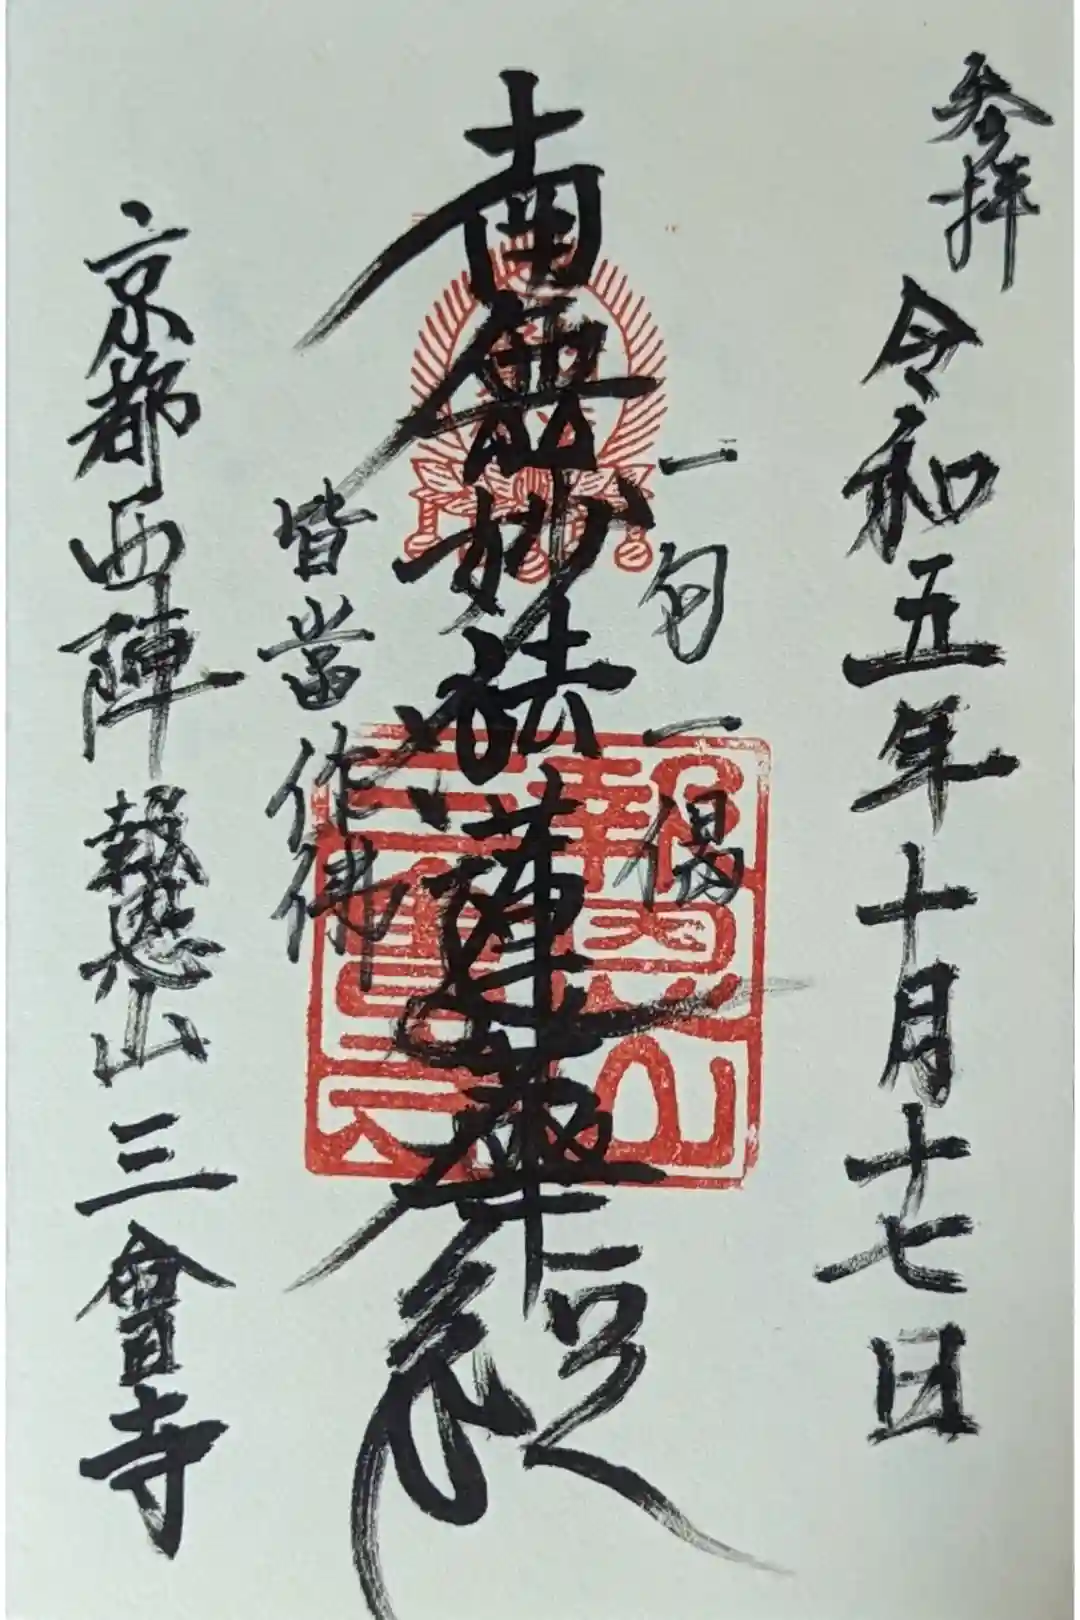 参拝
令和五年十月十七日
一句一偈
南無妙法蓮華経
皆當作佛
京都西陣報恩山三會寺
報恩山